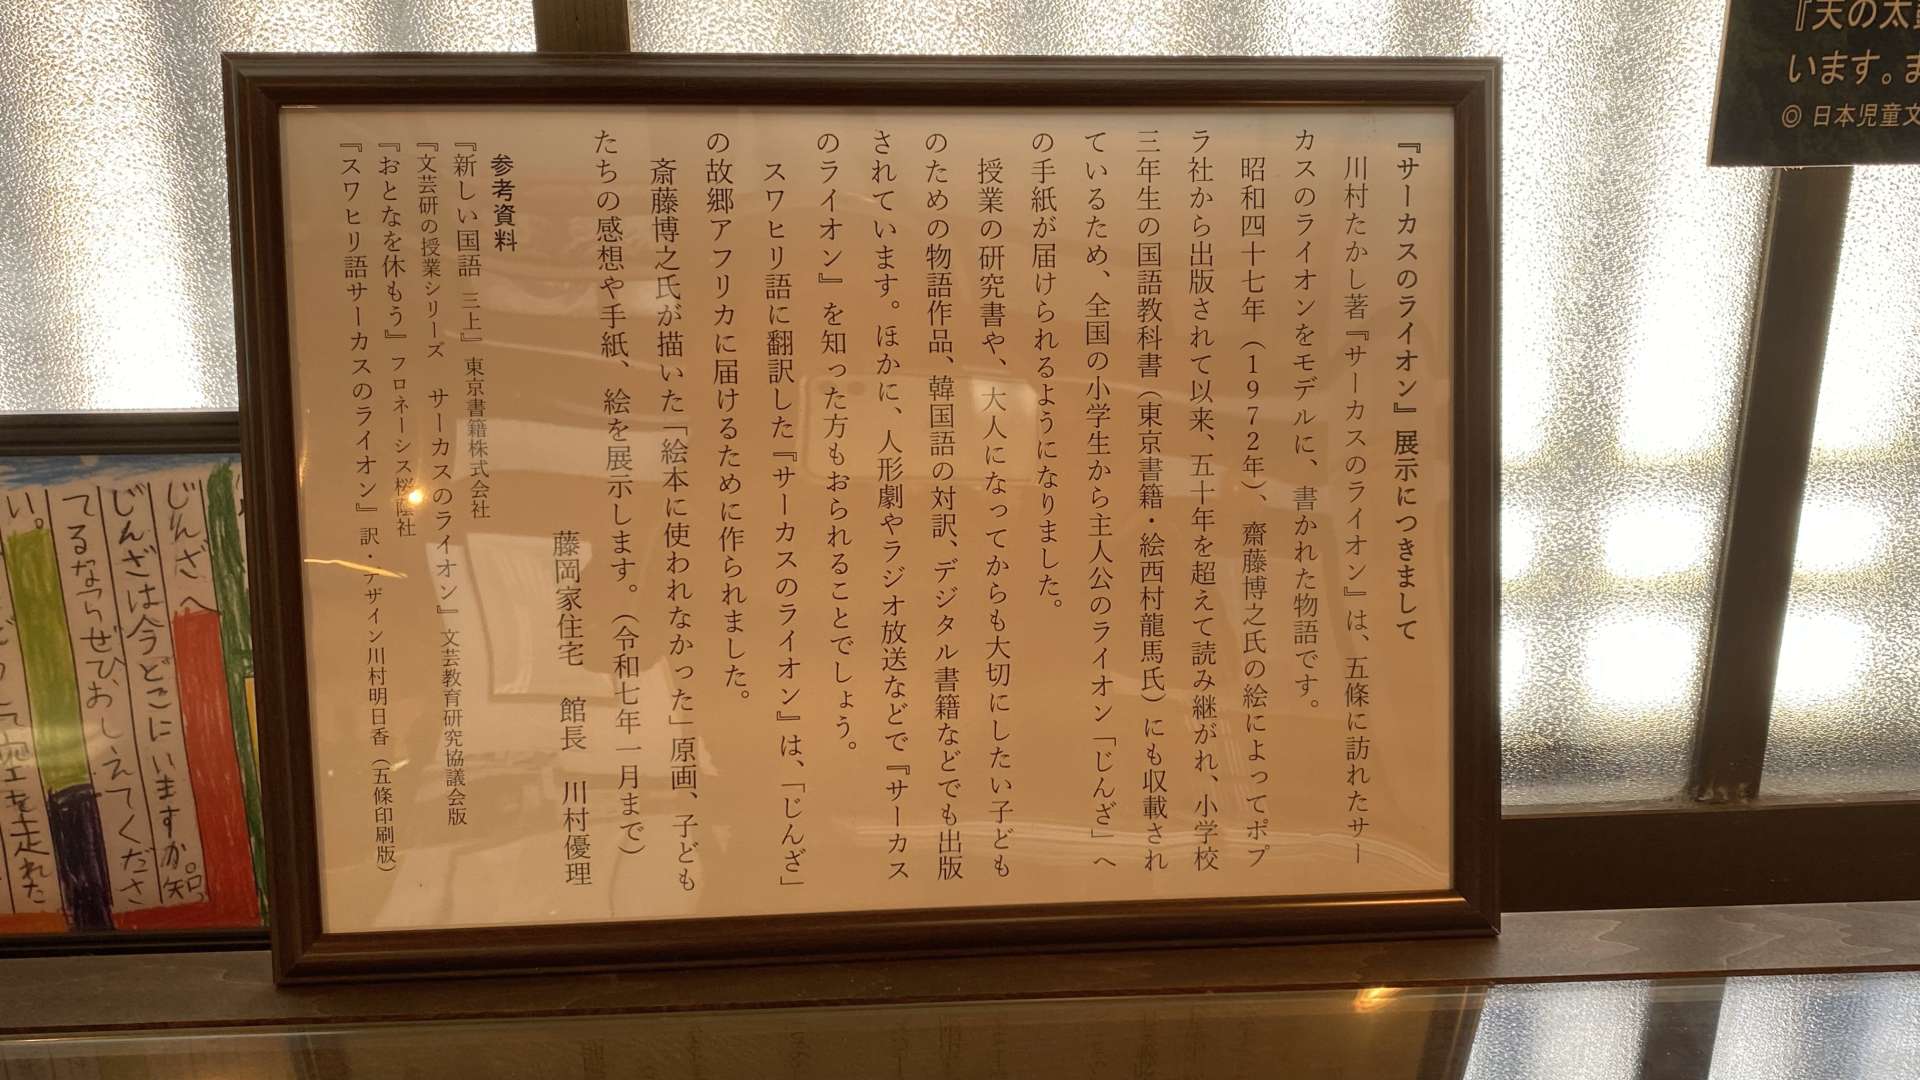 『サーカスのライオン』展示につきまして
川村たかし著『サーカスのライオン』は、五條に訪れたサー
カスのライオンをモデルに、書かれた物語です。
昭和四十七年（1972年）、齋藤博之氏の絵によってポプ
ラ社から出版されて以来、五十年を超えて読み継がれ、小学校
三年生の国語教科書（東京書籍・絵西村龍馬氏）にも収載され
ているため、全国の小学生から主人公のライオン「じんざ」へ
の手紙が届けられるようになりました。
授業の研究書や、大人になってからも大切にしたい子ども
のための物語作品、韓国語の対訳、デジタル書籍などでも出版
されています。ほかに、人形劇やラジオ放送などで『サーカス
のライオン』を知った方もおられることでしょう。
スワヒリ語に翻訳した『サーカスのライオン』は、「じんざ」
の故郷アフリカに届けるために作られました。
斎藤博之氏が描いた「絵本に使われなかった」原画、子ども
たちの感想や手紙、絵を展示します。（令和七年一月まで）
藤岡家住宅 館長 川村優理
参考資料
『新しい国語 三上』東京書籍株式会社
『文芸研の授業シリーズ サーカスのライオン』文芸教育研究協議会版
『おとなを休もう』フロネーシス桜蔭社
『スワヒリ語サーカスのライオン』訳・デザイン川村明日香（五條印刷版）
『天の太
います。ま
◎日本児童文
じんざへ
じんざは今どこにいますか。知
てるならぜひ、おしえてくださ
い。